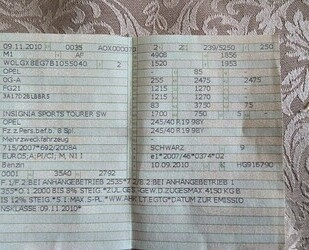 09.11.2010 0035 AOX000039 2 2 239/5250 250
M1 AF 4908 1856
W0LGX8EG7B1055040 2 1520 1953
OPEL 85
0G-A 255 2475 2475
FG21 1215 1270
3A1702BLBR5 1215 1270
83 3750 75
INSIGNIA SPORTS TOURER SW 1700 750 5
OPEL 245/40 R19 98Y
Fz.z.Pers.bef.b. 8 Spl. 245/40 R19 98Y
Mehrzweckfahrzeug
715/2007*692/2008A SCHWARZ 9
EURO5;A;PI/CI; M, N1 I e1*2007/46*0374*02
Benzin 10.09.2010 HG916790
0001 35A0 2792
BEI ANHAENGEBETRIEB 2535*7.2/8.2 BEI ANHAENGEBETRIEB 1
355*0.1:2000 BIS 8% STEIG.*ZUL.GES.GEW.D.ZUGES.MAX.4150 KG B
IS 12% STEIG.*S.1 MAX.S.-PL.*WW.AHK LT.EGTG*DATUM ZUR EMISSIO
NSKLASSE:09.11.2010*